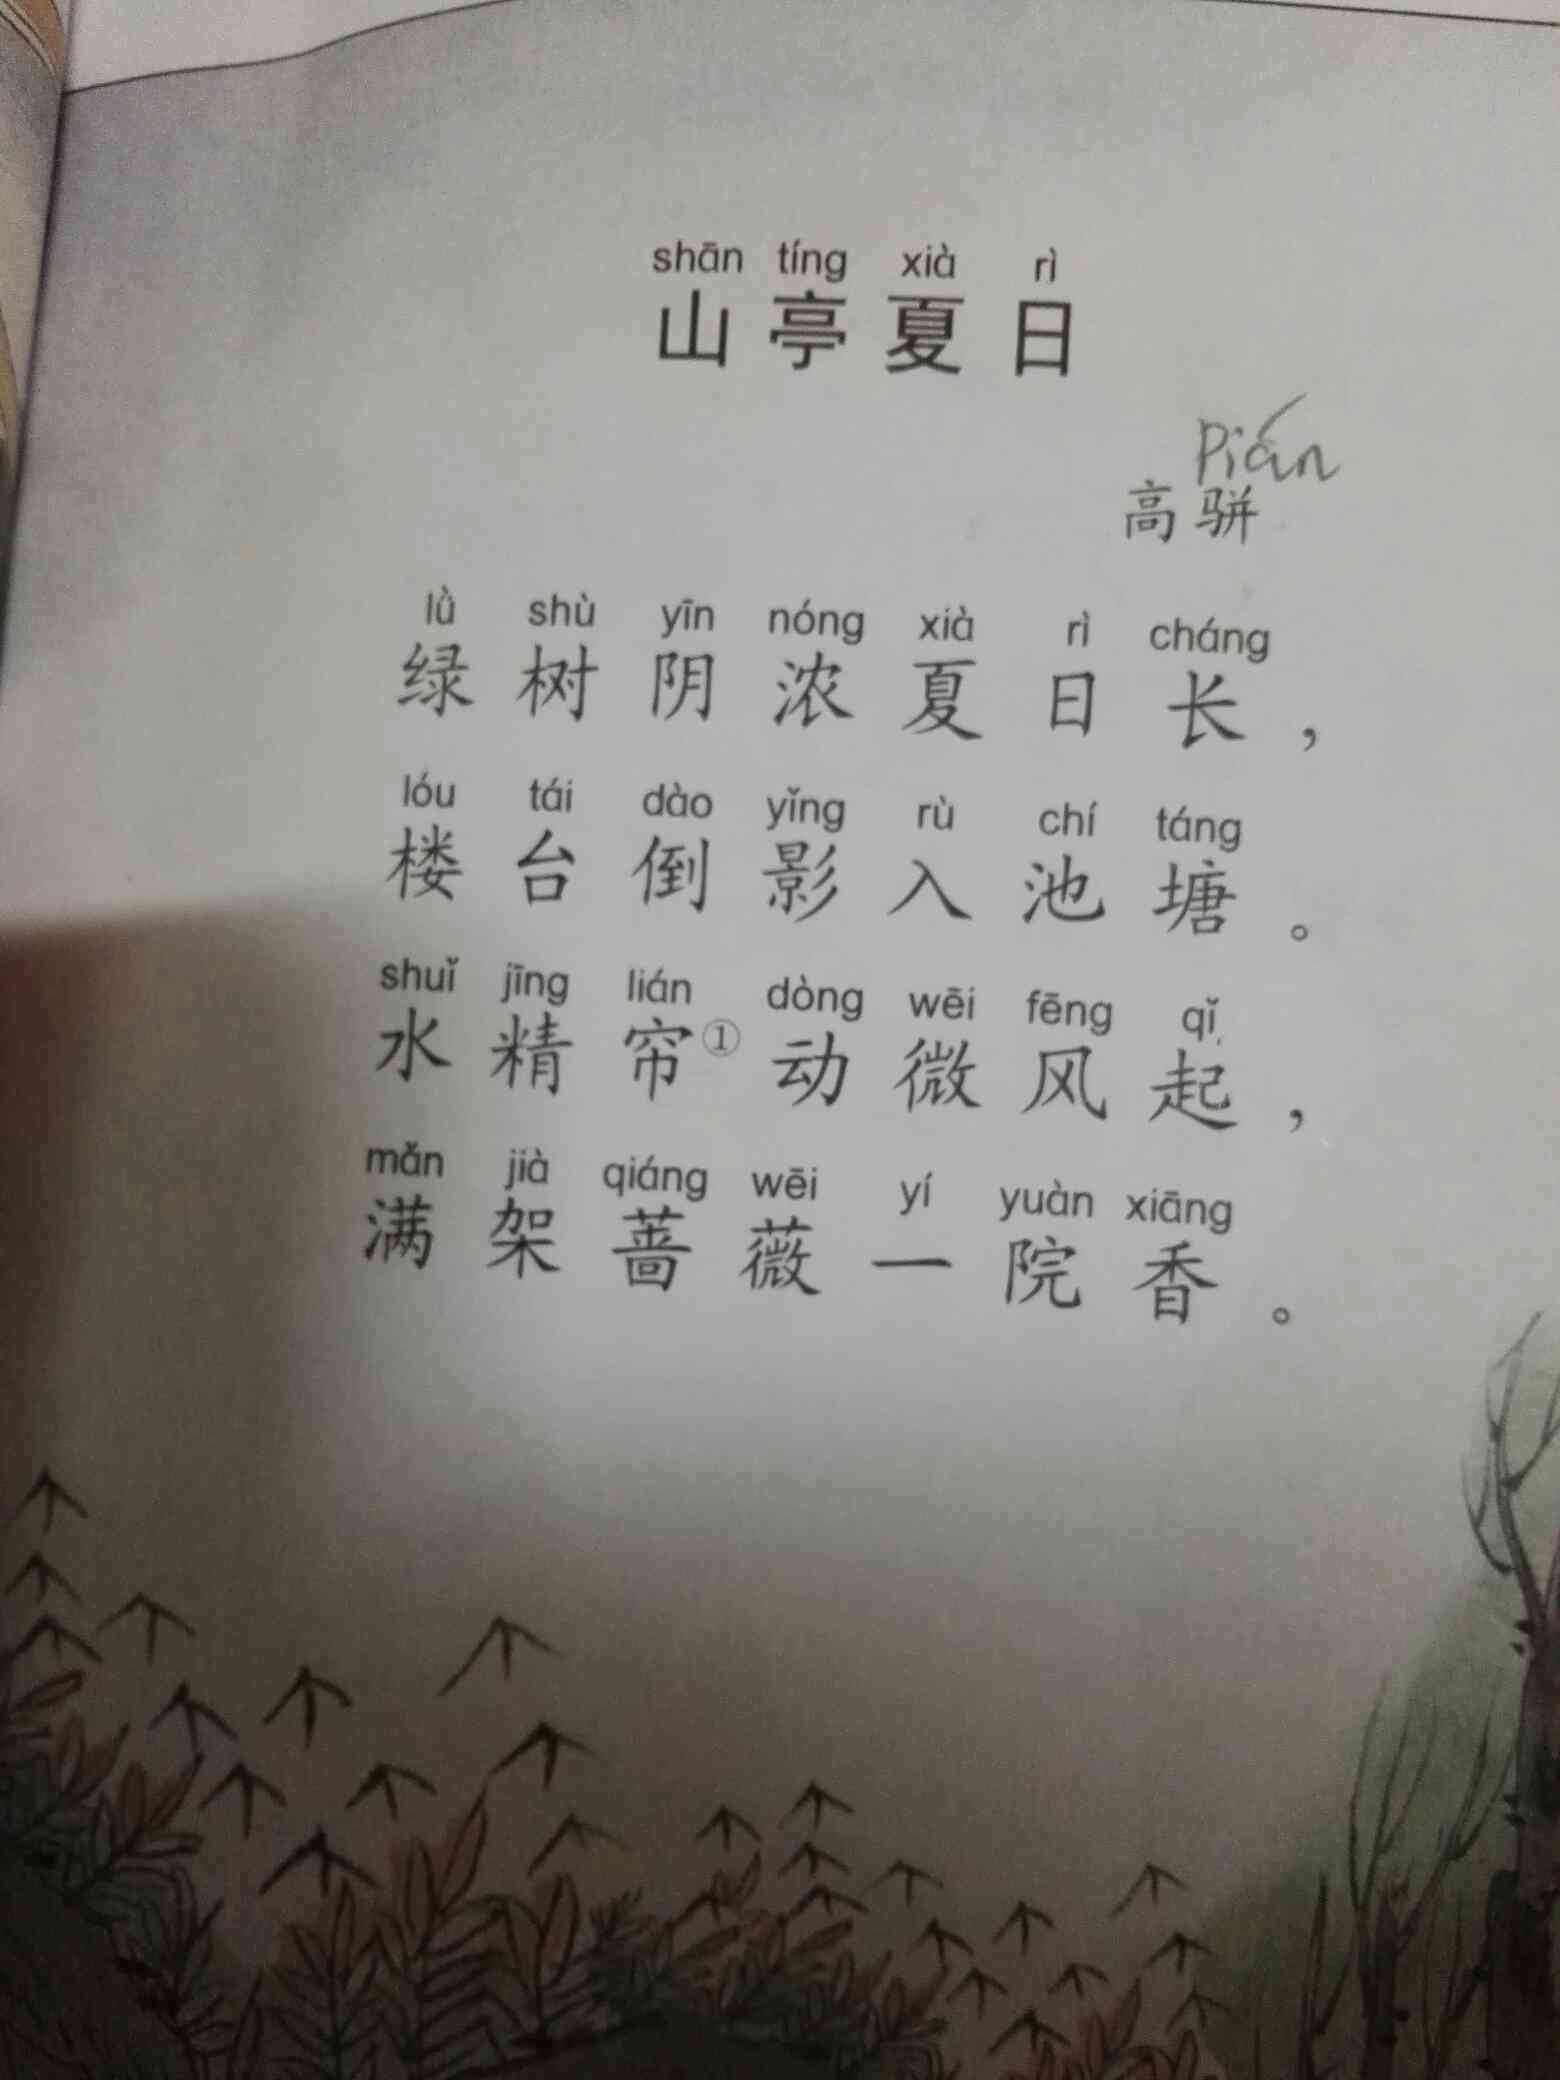 shān tíng xià rì
山亭夏日
Pián
高骈
lǜ shù yīn nóng xià rì cháng
绿树阴浓夏日长，
lóu tái dào yǐng rù chí táng
楼台倒影入池塘。
shuǐ jīng lián dòng wēi fēng qǐ
水精帘①动微风起，
mǎn jià qiáng wēi yí yuàn xiāng
满架蔷薇一院香。